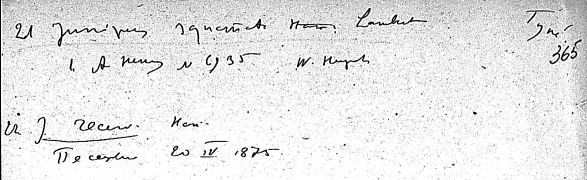 21 Juniperus squamata Ham. Lambert
1. A Henry N 6935 W. Hupeh
365
22 J. recurv. Ham.
20 IV 1875